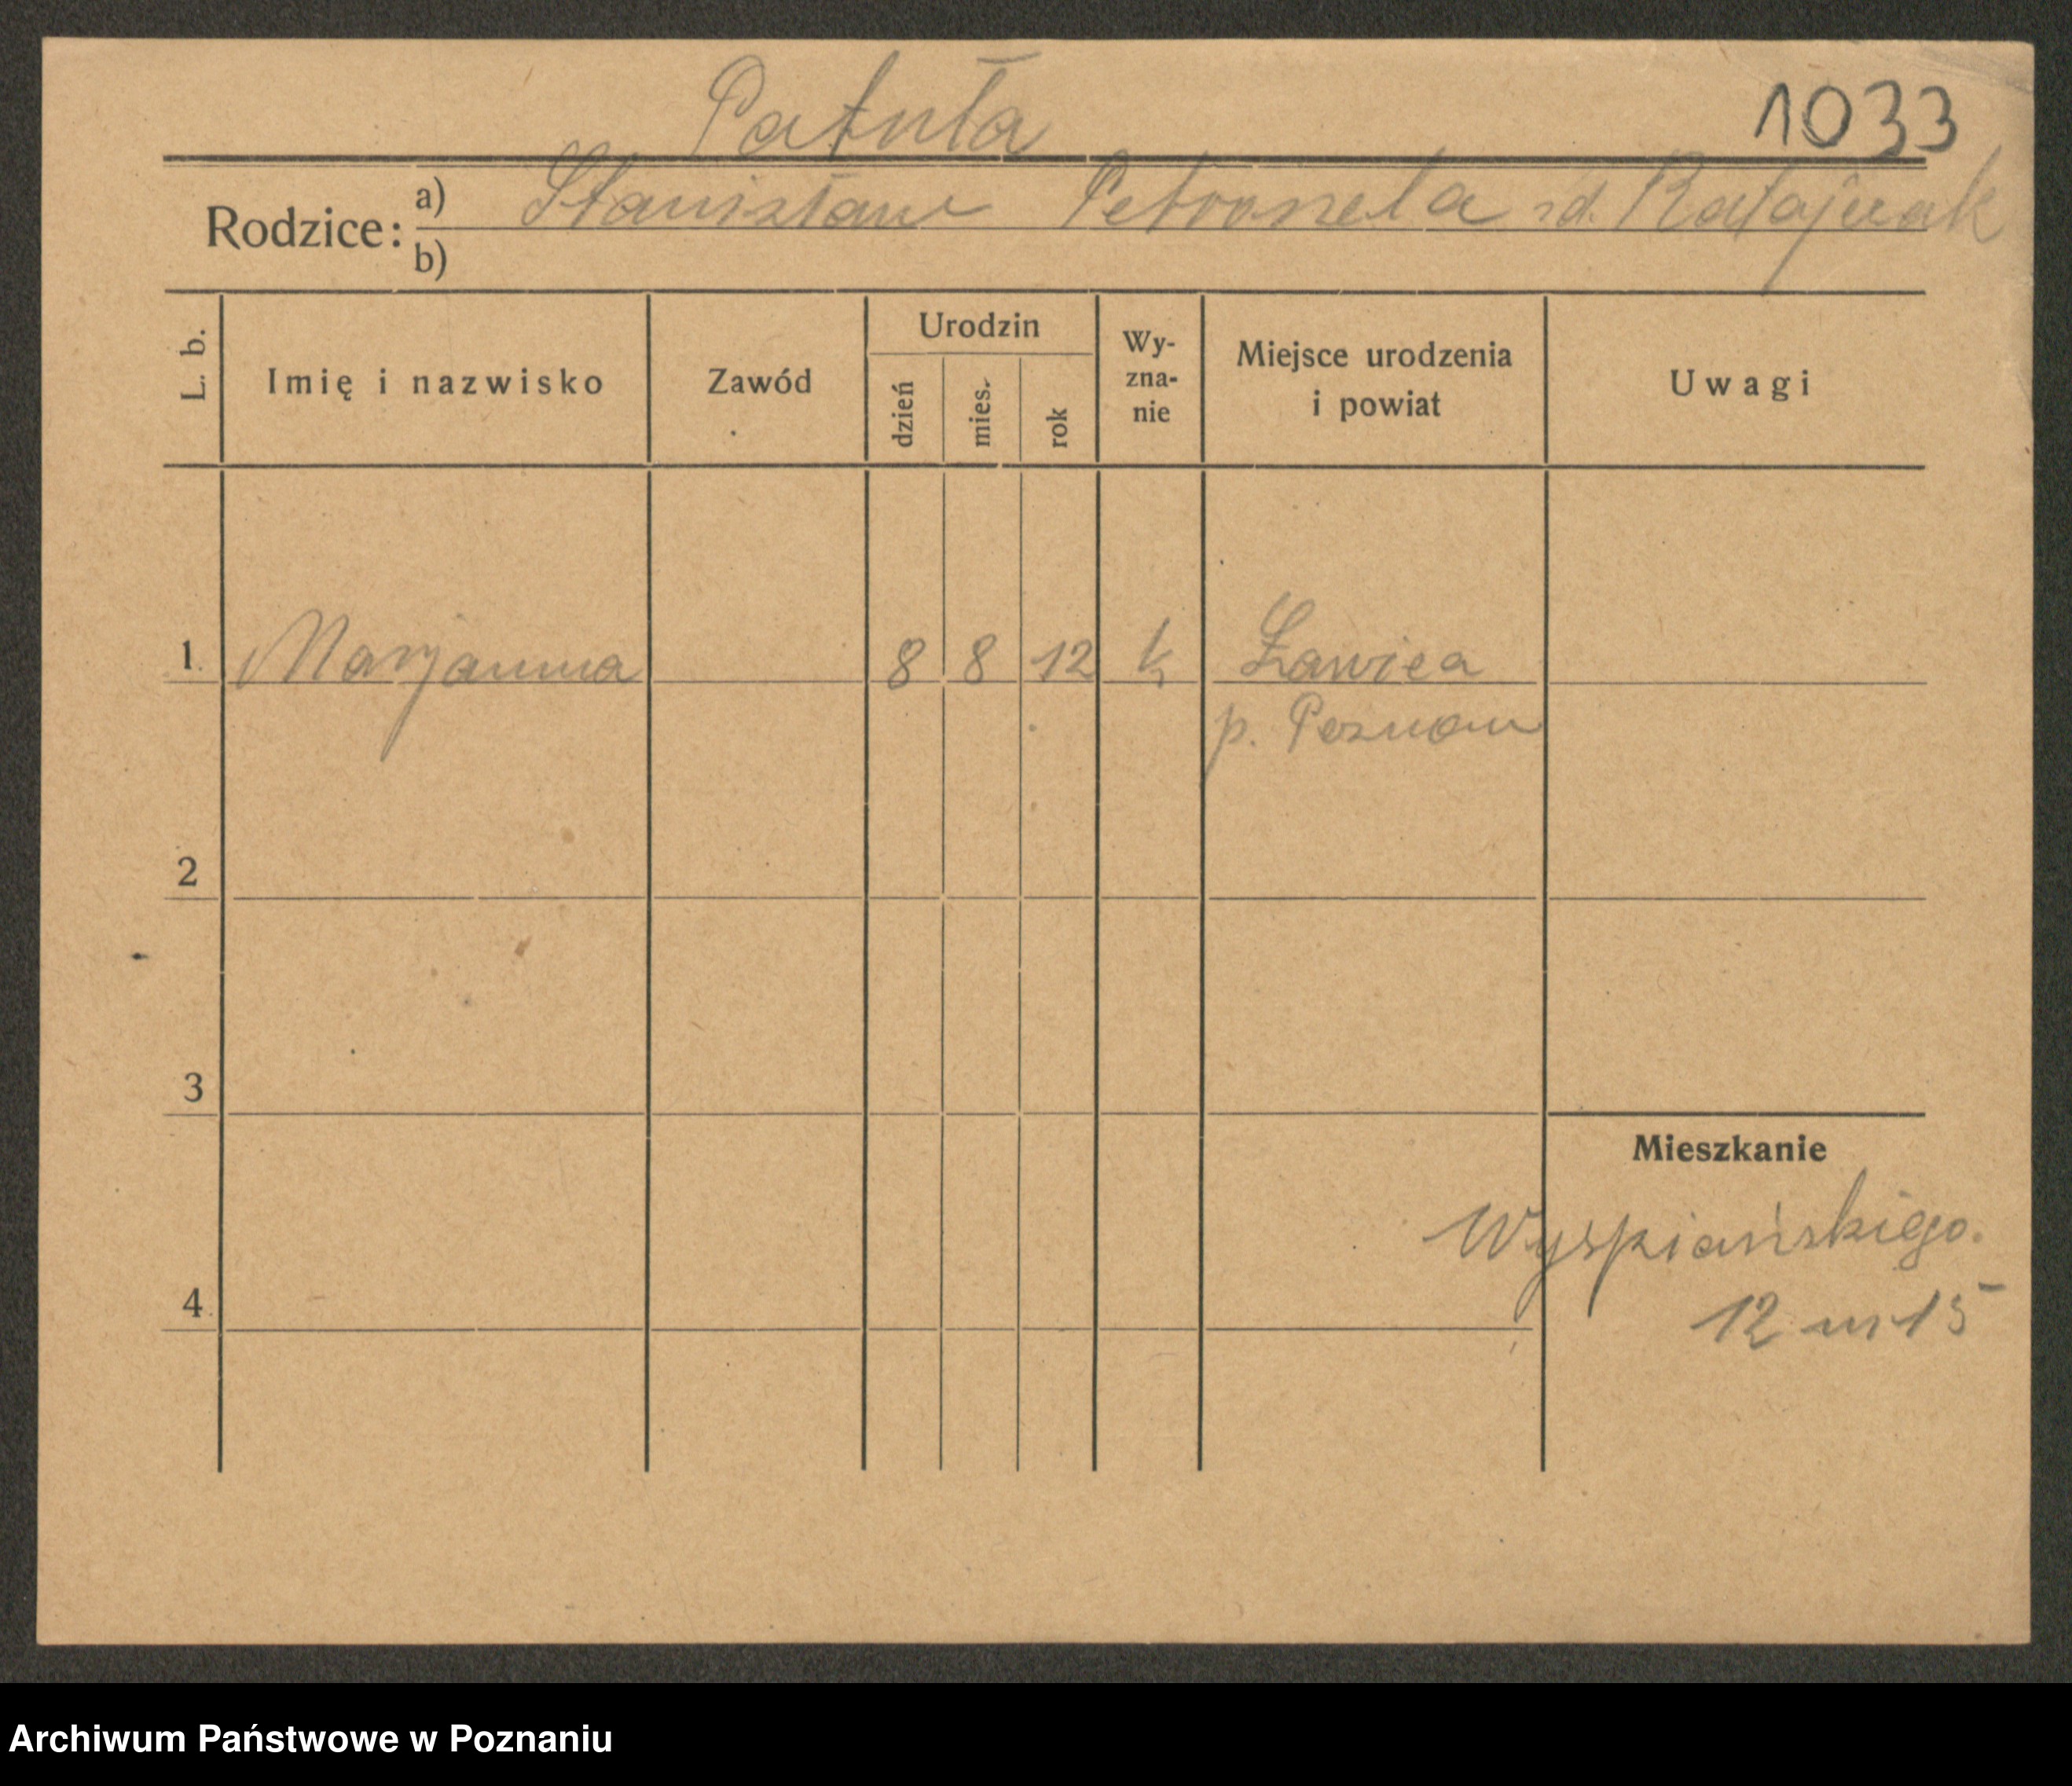 Patuła 1033
Rodzice: a) Stanisław Petronela zd. Ratajczak
b)
L. b. Imię i nazwisko Zawód Urodzin dzień mies. rok Wy-zna-nie Miejsce urodzenia i powiat Uwagi
1. Maryanna 8 8 12 k Ławica
p. Poznań
2
3
Mieszkanie
Wyspiańskiego.
4 12 m 15
Archiwum Państwowe w Poznaniu